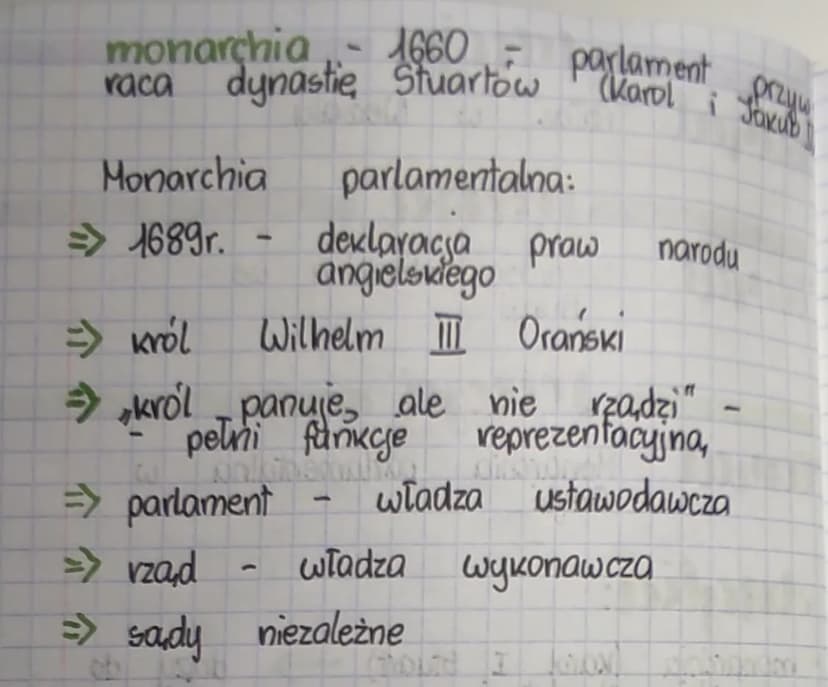 monarchia - 1660 - parlament przyw
raca dynastię Stuartów (Karol i Jakub
Monarchia parlamentalna:
⇒ 1689r. - deklaracja praw narodu
angielskiego
⇒ król Wilhelm III Orański
⇒ „król panuje, ale nie rządzi" -
- pełni funkcje reprezentacyjną
⇒ parlament - władza ustawodawcza
⇒ rząd - władza wykonawcza
⇒ sądy niezależne